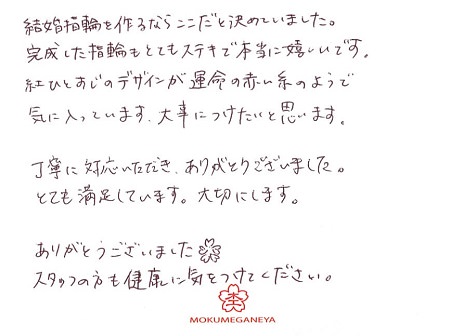 結婚指輪を作るならここだと決めていました。
完成した指輪もとてもステキで本当に嬉しいです。
紅ひとすじのデザインが運命の赤い糸のようで
気に入っています。大事につけたいと思います。
丁寧に対応いただき、ありがとうございました。
とても満足しています。大切にします。
ありがとうございました
スタッフの方も健康に気をつけてください。
MOKUMEGANEYA